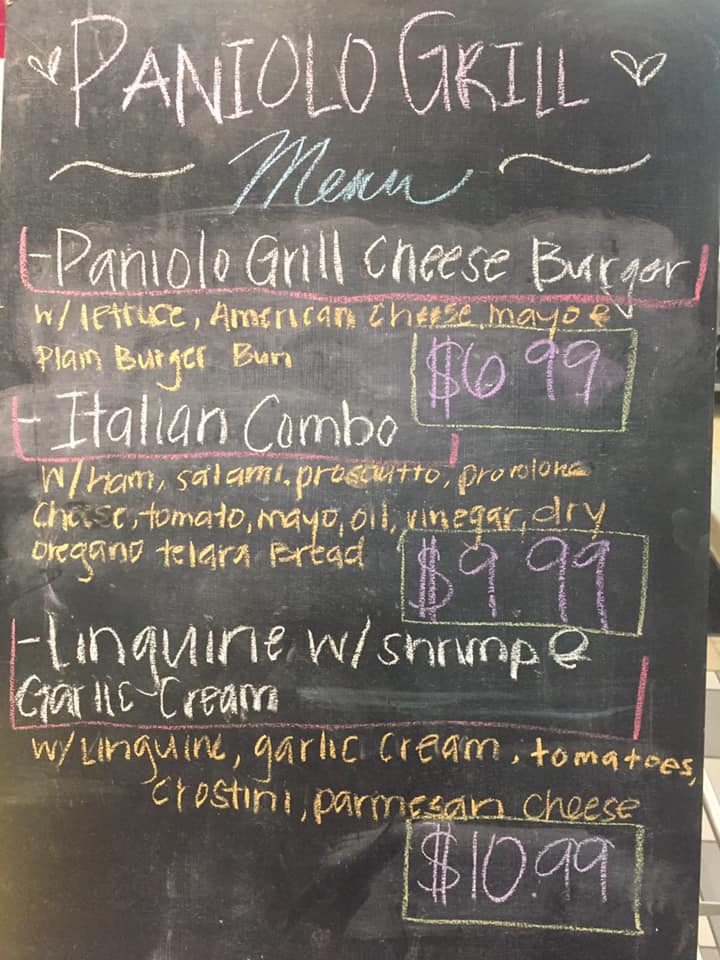 PANIOLO GRILL
Menu
-Paniolo Grill Cheese Burger
w/ lettuce, American cheese, mayo &
Plain Burger Bun
$6.99
- Italian Combo
w/ ham, salami, proscuitto, provolone
cheese, tomato, mayo, oil, vinegar, dry
oregano telara Bread
$9.99
-Linguine w/ shrimp &
Garlic Cream
w/ Linguine, garlic cream, tomatoes,
crostini, parmesan cheese
$10.99